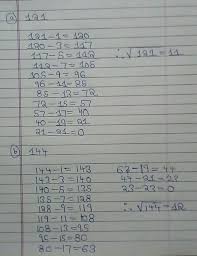 (a) 121
121-1=120
120-3=117
117-5=112
∴√121=11
112-7=105
105-9=96
96-11=85
85-13=72
72-15=57
57-17=40
40-19=21
21-21=0
(b) 144
144-1=143
143-3=140
140-5=135
135-7=128
128-9=119
119-11=108
108-13=95
95-15=80
80-17=63
63-19=44
44-21=23
23-23=0
∴√144=12